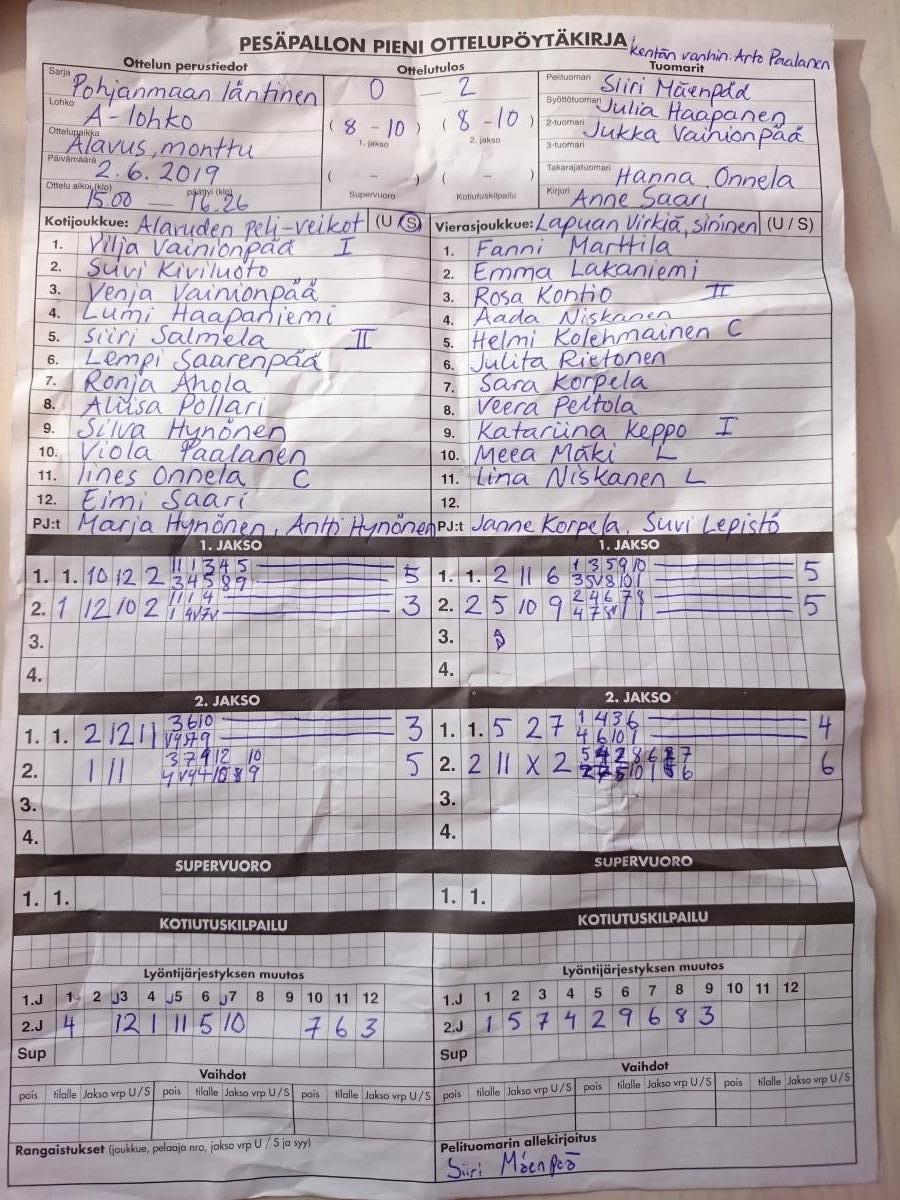 PESÄPALLON PIENI OTTELUPÖYTÄKIRJA
kentän vanhin: Arto Paalanen
Ottelun perustiedot
Ottelutulos
Tuomarit
Sarja Pohjanmaan läntinen
Lohko A-lohko
Ottelupaikka Alavus, monttu
Päivämäärä 2.6.2019
Ottelu alkoi (klo) 15.00 — päättyi (klo) 16.26
0 — 2
( 8 - 10 ) ( 8 - 10 )
1. jakso 2. jakso
( - ) ( - )
Supervuoro Kotiutuskilpailu
Pelituomari Siiri Mäenpää
Syöttötuomari Julia Haapanen
2-tuomari Jukka Vainionpää
3-tuomari
Takarajatuomari Hanna Onnela
Kirjuri Anne Saari
Kotijoukkue: Alavuden Peli-veikot (U/S)
1. Vilja Vainionpää I
2. Suvi Kiviluoto
3. Venja Vainionpää
4. Lumi Haapaniemi
5. Siiri Salmela II
6. Lempi Saarenpää
7. Ronja Ahola
8. Aliisa Pollari
9. Silva Hynönen
10. Viola Paalanen
11. Iines Onnela C
12. Eimi Saari
PJ:t Marja Hynönen, Antti Hynönen
Vierasjoukkue: Lapuan Virkiä, sininen (U / S)
1. Fanni Marttila
2. Emma Lakaniemi
3. Rosa Kontio II
4. Aada Niskanen
5. Helmi Kolehmainen C
6. Julita Rietonen
7. Sara Korpela
8. Veera Peltola
9. Katariina Keppo I
10. Meea Mäki L
11. Iina Niskanen L
12.
PJ:t Janne Korpela, Suvi Lepistö
1. JAKSO
1. 1. 10 12 2 5
2. 1 12 10 2 3
3.
4.
1. JAKSO
1. 1. 2 11 6 5
2. 2 5 10 9 5
3.
4.
2. JAKSO
1. 1. 2 12 11 3
2. 1 11 5
3.
4.
2. JAKSO
1. 1. 5 2 7 4
2. 2 11 X 2 6
3.
4.
SUPERVUORO
1. 1.
SUPERVUORO
1. 1.
KOTIUTUSKILPAILU
KOTIUTUSKILPAILU
Lyöntijärjestyksen muutos
1.J 1 2 J3 4 J5 6 J7 8 9 10 11 12
2.J 4 12 1 11 5 10 7 6 3
Sup
Lyöntijärjestyksen muutos
1.J 1 2 3 4 5 6 7 8 9 10 11 12
2.J 1 5 7 4 2 9 6 8 3
Sup
Vaihdot
pois tilalle Jakso vrp U/S pois tilalle Jakso vrp U/S pois tilalle Jakso vrp U/S
Vaihdot
pois tilalle Jakso vrp U/S pois tilalle Jakso vrp U/S pois tilalle Jakso vrp U/S
Rangaistukset (joukkue, pelaaja nro, jakso vrp U / S ja syy)
Pelituomarin allekirjoitus
Siiri Mäenpää